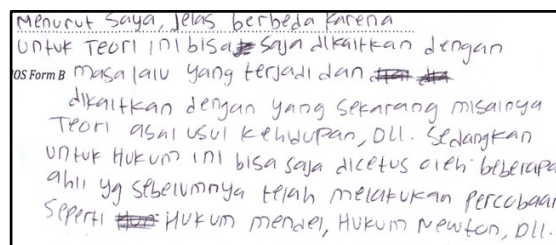 Menurut saya, Jelas berbeda karena
untuk Teori ini bisa saja dikaitkan dengan
OS Form B masa lalu yang terjadi dan
dikaitkan dengan yang sekarang misalnya
Teori asal usul kehidupan, Dll. Sedangkan
untuk Hukum ini bisa saja dicetus oleh beberapa
ahli yg sebelumnya telah melakukan percobaan
Seperti Hukum mendel, Hukum Newton, Dll.